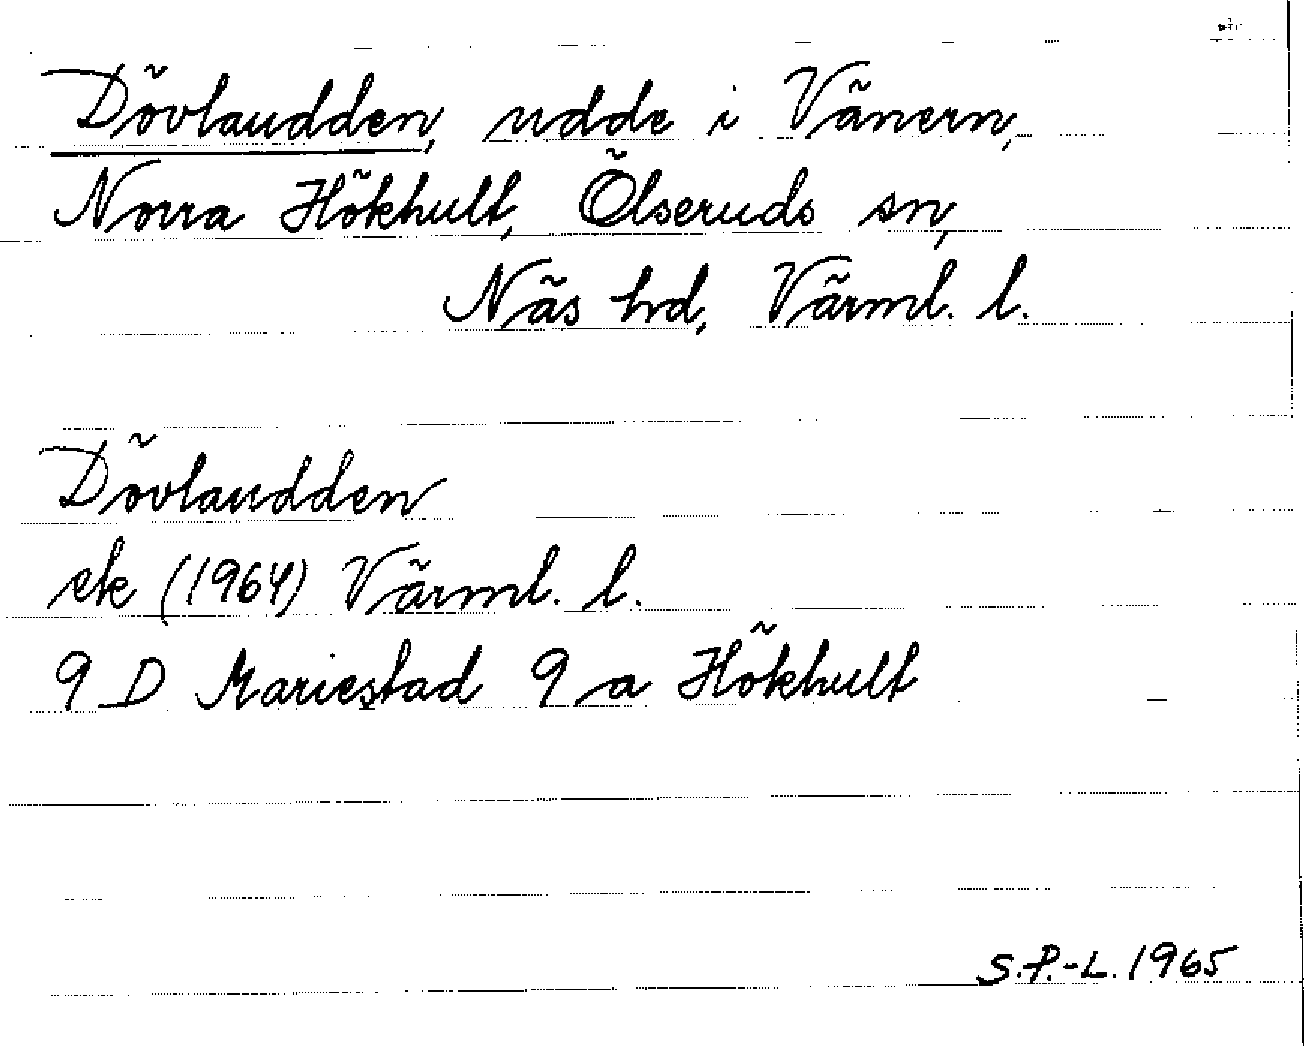 Dövlaudden, udde i Vänern,
Norra Hökhult, Ölseruds sn,
Näs hd, Värml. l.
Dövlaudden
ek (1964) Värml. l.
9 D Mariestad 9 a Hökhult
S.P.-L. 1965